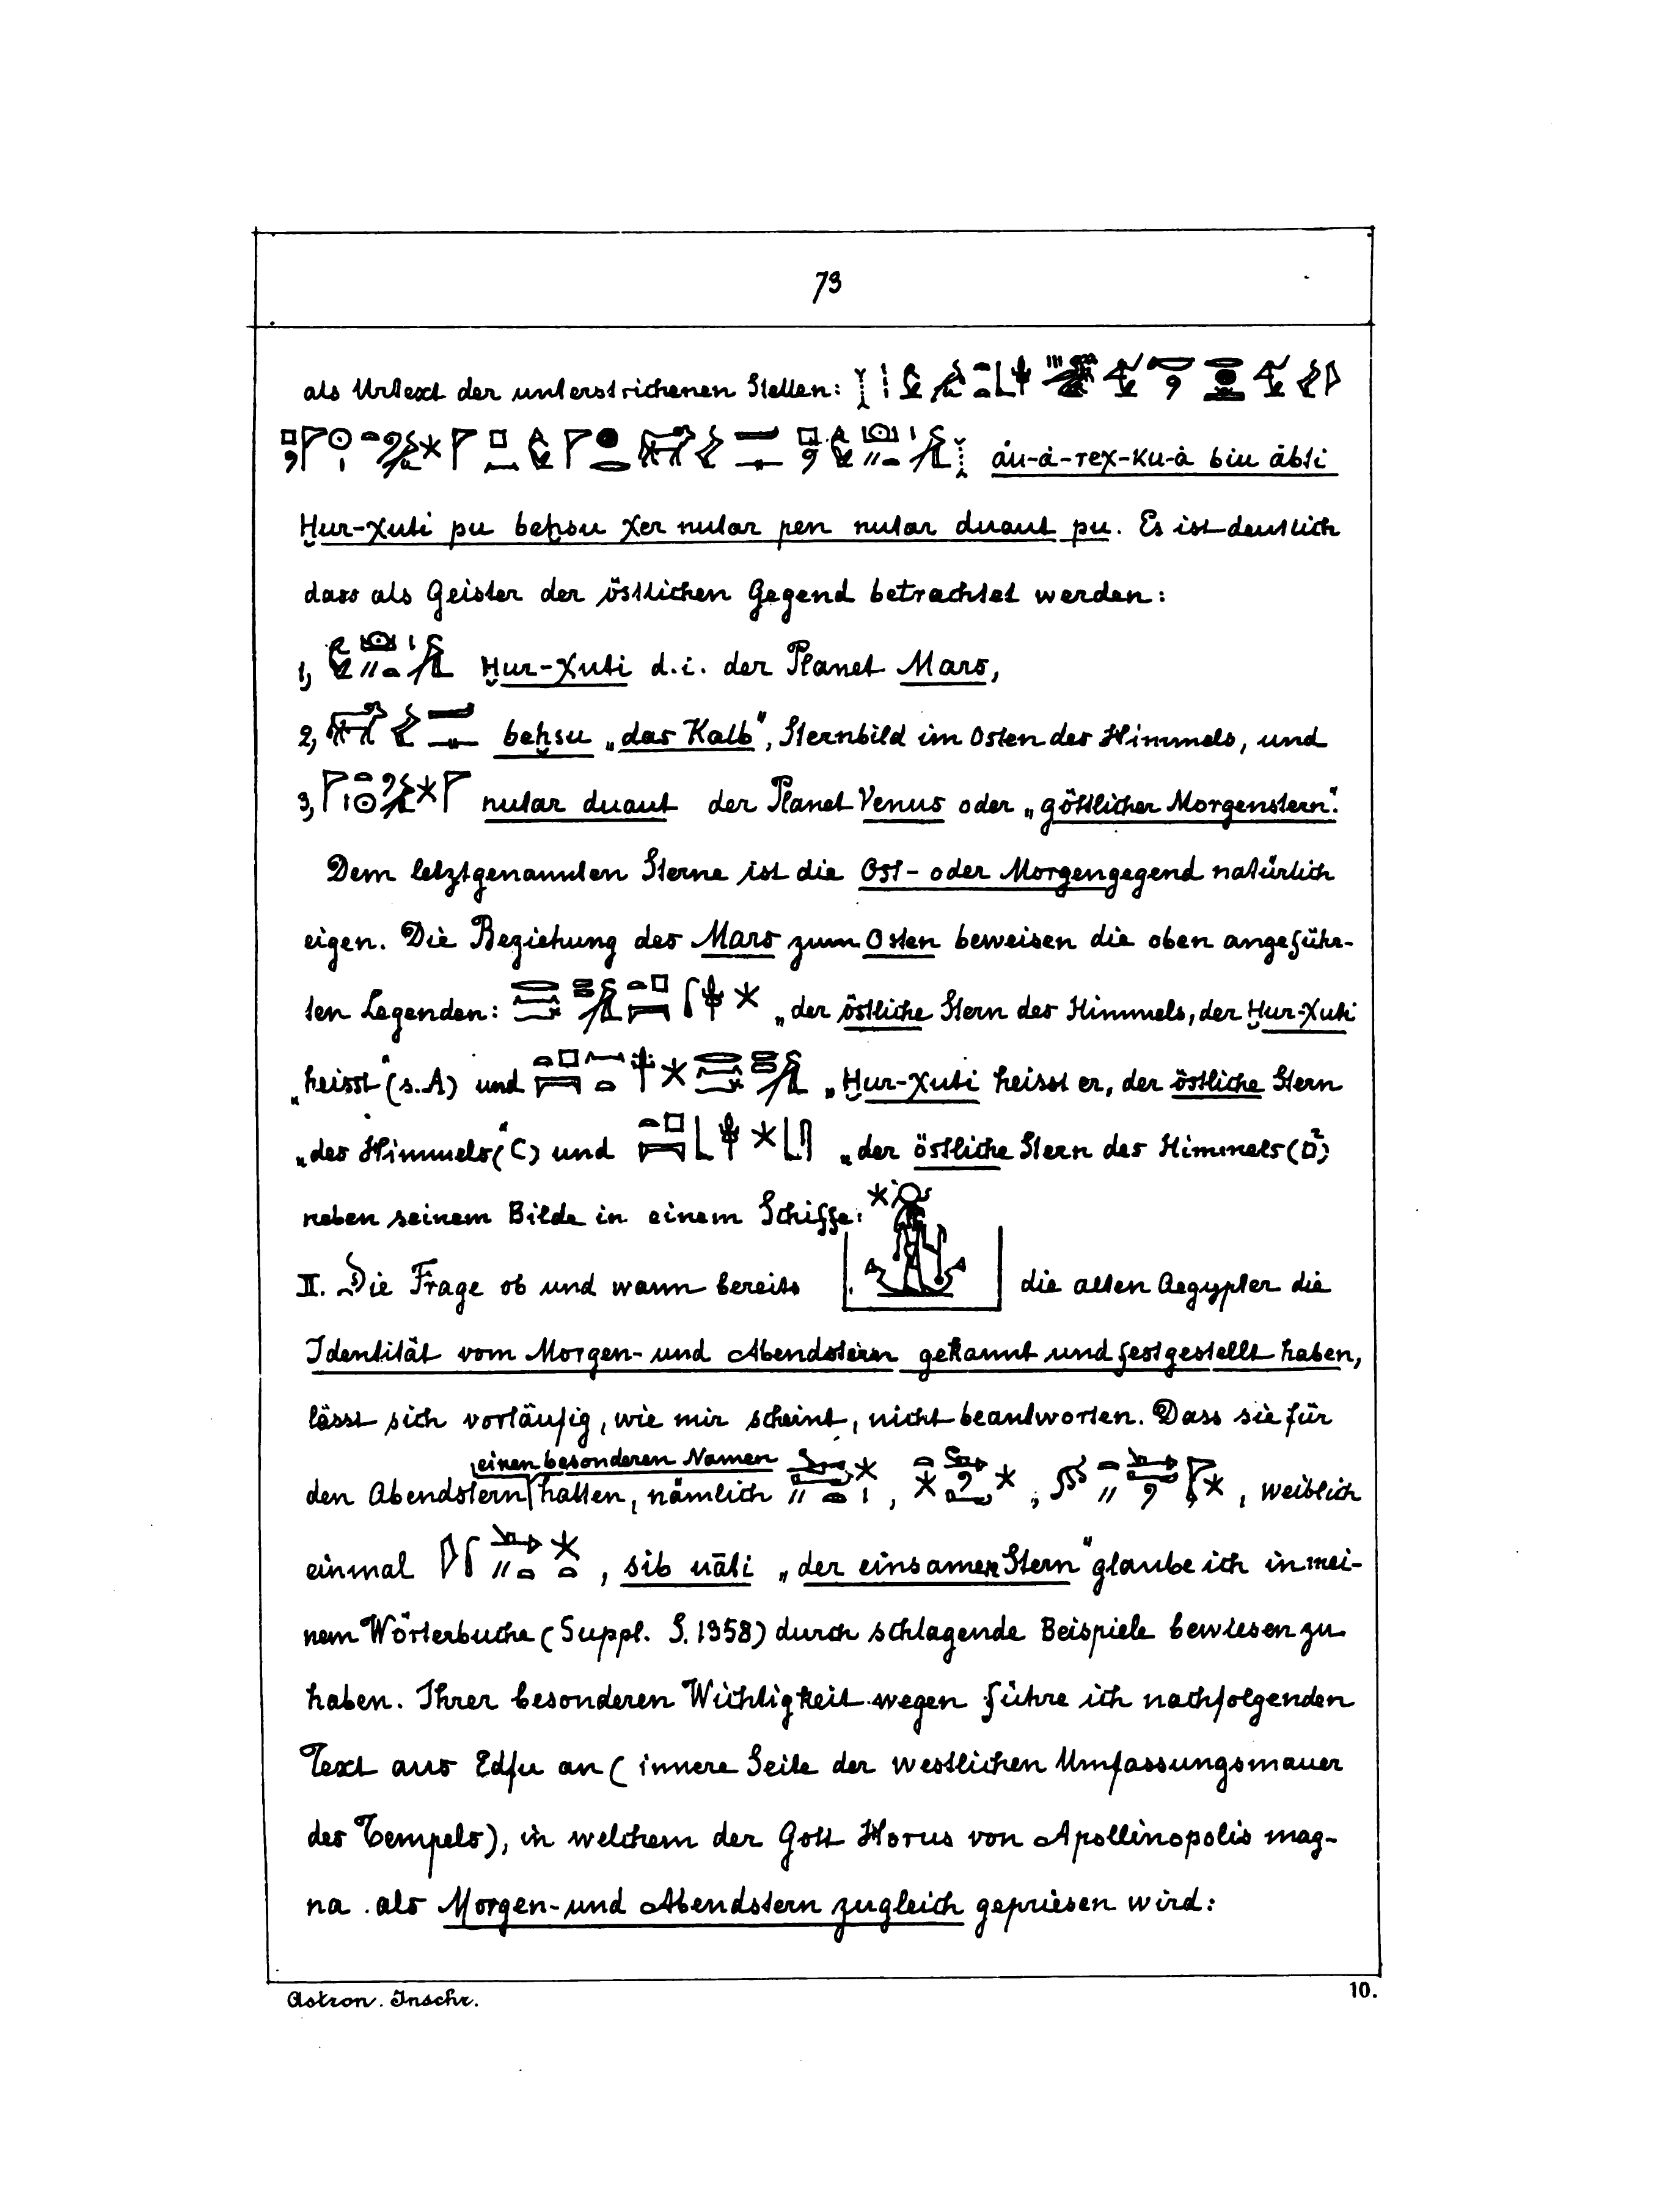 73
als Urtext der unterstrichenen Stellen:
áu-á-reχ-ku-á biu ábti
Ḥur-χuti pu beḥsu χer nutar pen nutar duaut pu. Es ist deutlich
dass als Geister der östlichen Gegend betrachtet werden:
1, Ḥur-χuti d.i. der Planet Mars,
2, beḥsu „das Kalb", Sternbild im Osten des Himmels, und
3, nutar duaut der Planet Venus oder „göttlicher Morgenstern".
Dem letztgenannten Sterne ist die Ost- oder Morgengegend natürlich
eigen. Die Beziehung des Mars zum Osten beweisen die oben angeführ-
ten Legenden: „der östliche Stern des Himmels, der Ḥur-χuti
„heisst" (s. A) und „Ḥur-χuti heisst er, der östliche Stern
„des Himmels" (C) und „der östliche Stern des Himmels (D²)
neben seinem Bilde in einem Schiffe:
II. Die Frage ob und wann bereits die alten Aegypter die
Identität vom Morgen- und Abendstern gekannt und festgestellt haben,
lässt sich vorläufig, wie mir scheint, nicht beantworten. Dass sie für
den Abendstern einen besonderen Namen hatten, nämlich , , , weiblich
einmal , sib uāti „der einsamen Stern" glaube ich in mei-
nem Wörterbuche (Suppl. S. 1958) durch schlagende Beispiele bewiesen zu
haben. Ihrer besonderen Wichtigkeit wegen führe ich nachfolgenden
Text aus Edfu an (innere Seite der westlichen Umfassungsmauer
des Tempels), in welchem der Gott Horus von Apollinopolis mag-
na als Morgen- und Abendstern zugleich gepriesen wird:
Astron. Inschr. 10.